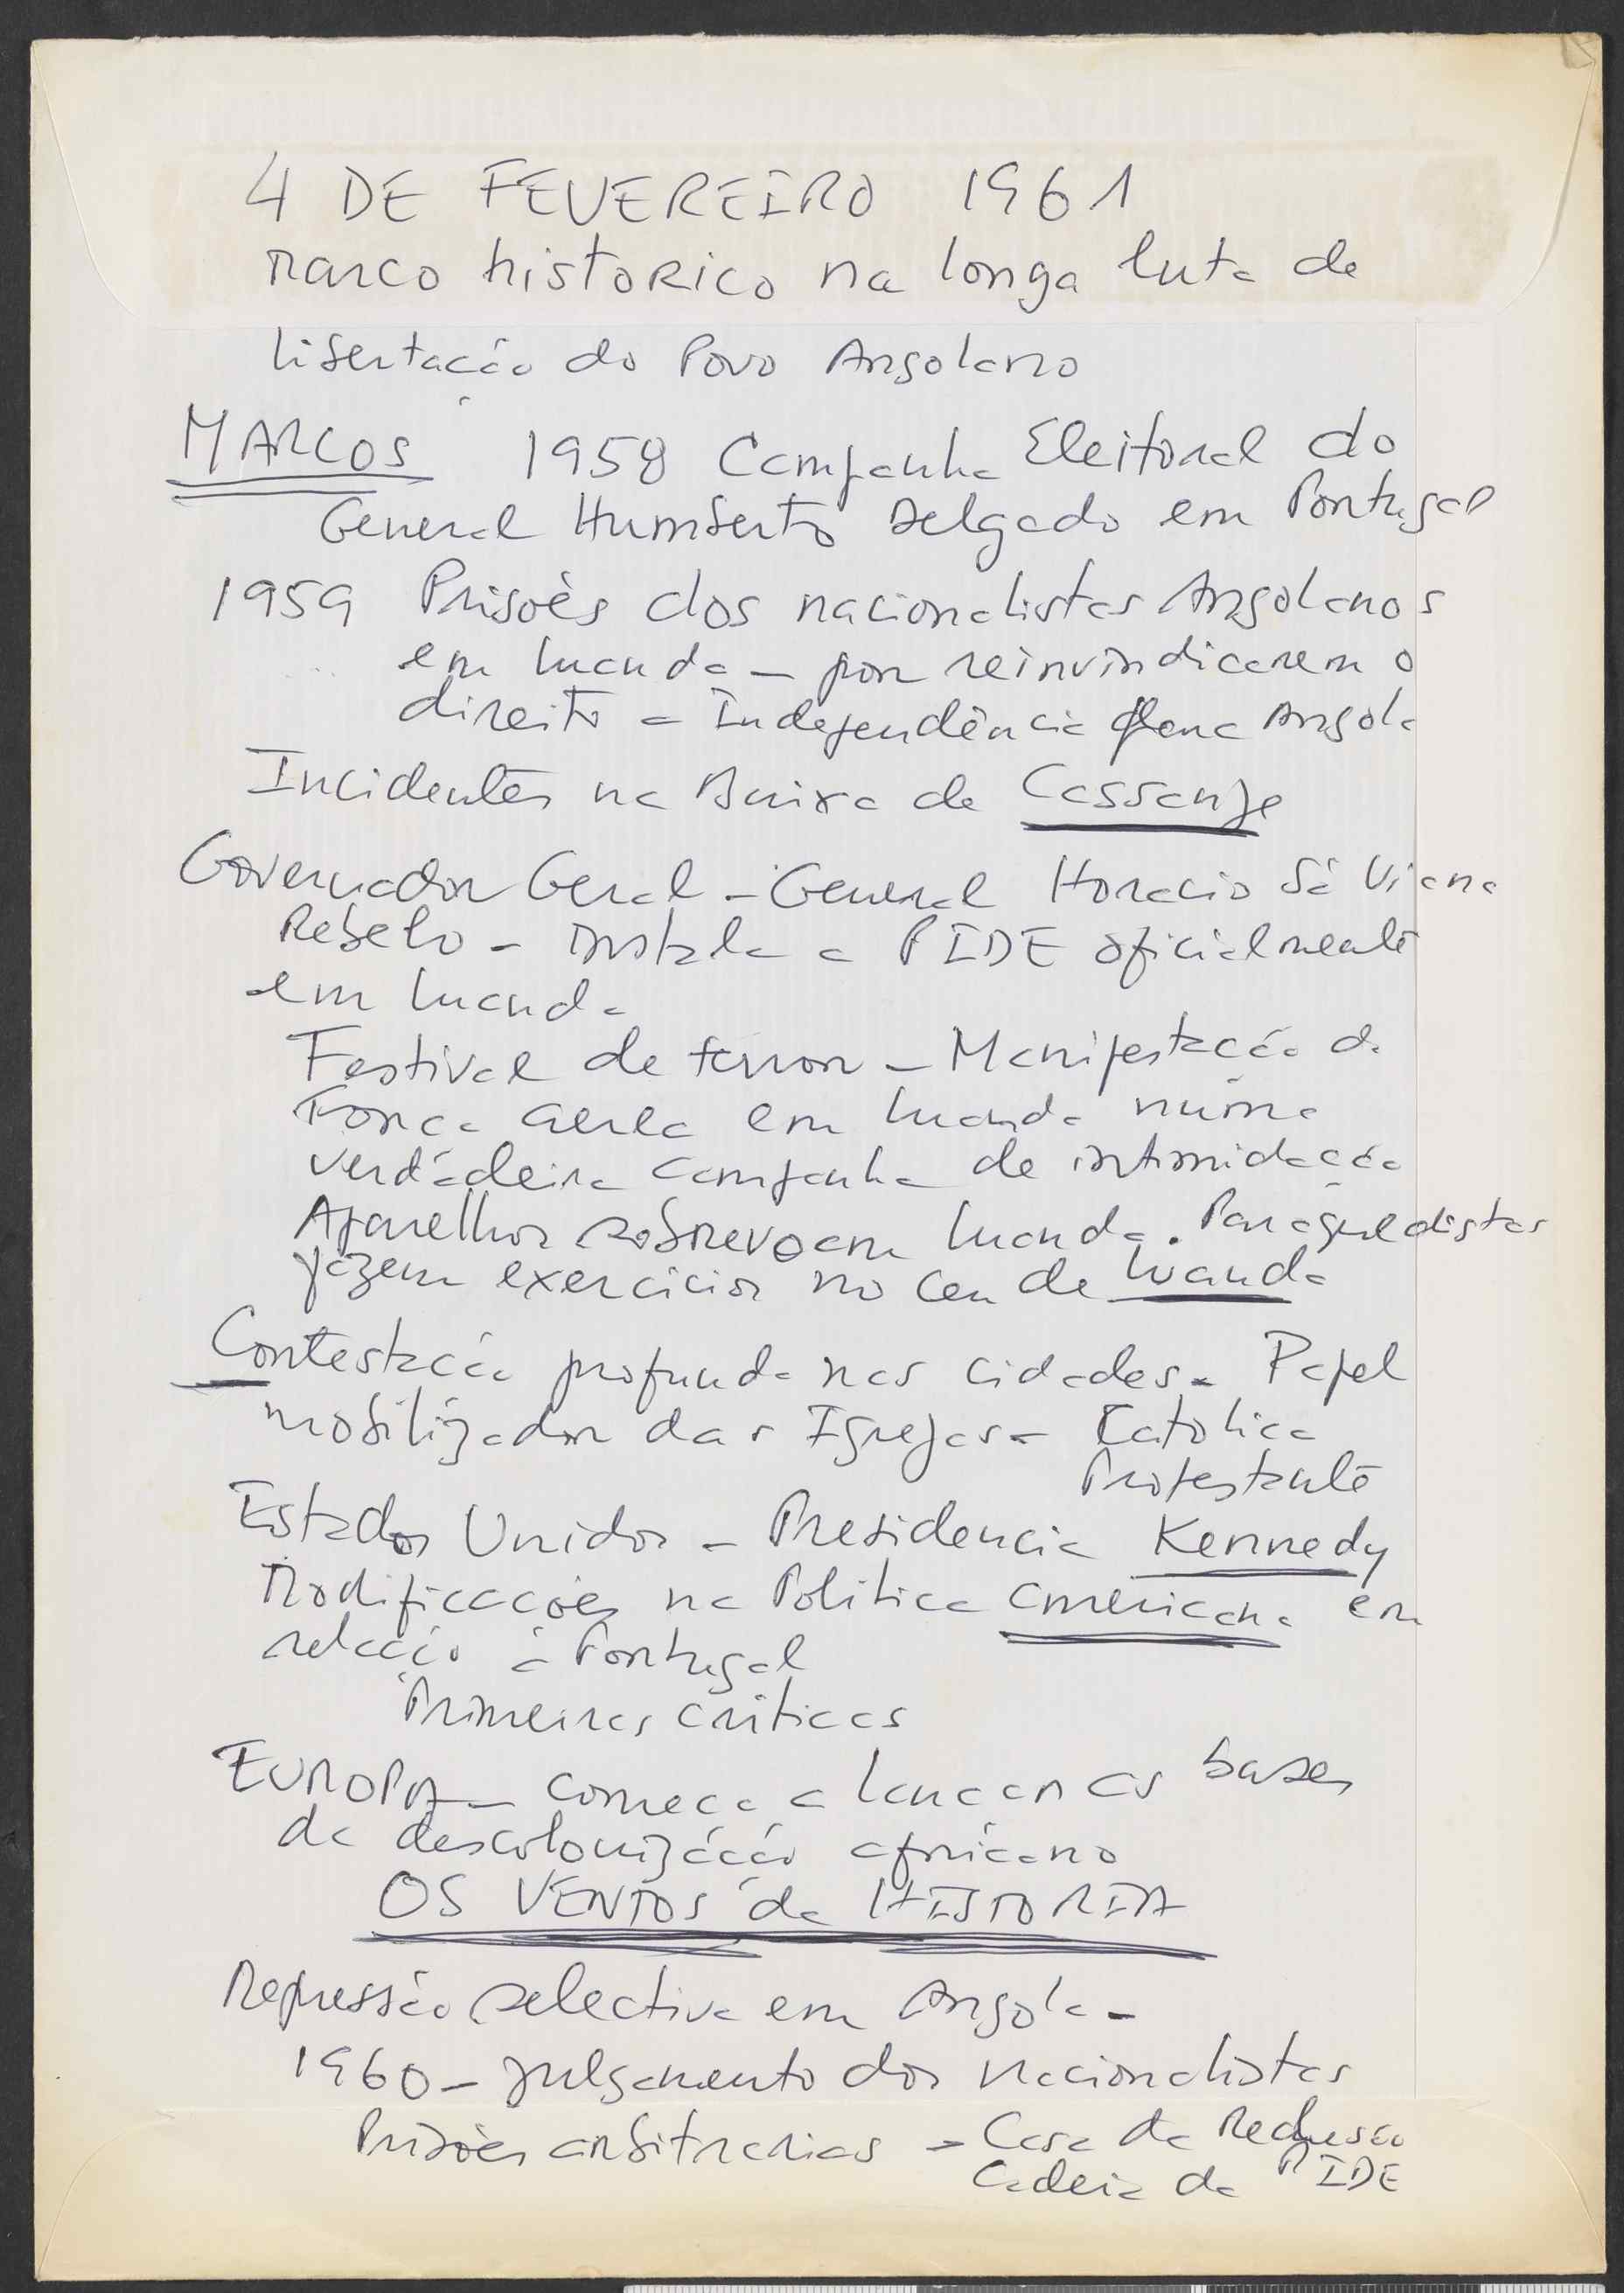 4 DE FEVEREIRO 1961
Marco historico na longa luta de
libertação do Povo Angolano
MARCOS 1958 Campanha Eleitoral do
General Humberto Delgado em Portugal
1959 Prisoês dos nacionalistas Angolanos
em Luanda - por reinvindicarem o
direito a Independência para Angola
Incidentes na Baixa de Cassanje
Governador Geral - General Horacio Sá Viana
Rebelo - instala a PIDE oficialmente
em Luanda
Festival de terror - Manifestação da
Força aerea em Luanda numa
verdadeira campanha de intimidação
Aparelhos sobrevoam Luanda. Paraquedistas
fazem exercicios no ceu de Luanda
Contestação profunda nas cidades - Papel
mobilizador das Igrejas - Catolica
Protestante
Estados Unidos - Presidencia Kennedy
Modificações na Politica americana em
relação á Portugal
Primeiras criticas
EUROPA - começa a lançar as bases
da descolonização africano
OS VENTOS da HISTORIA
Repressão selectiva em Angola -
1960 - julgamento dos nacionalistas
Prisões arbitrarias - Casa da Reclusão
Cadeia da PIDE